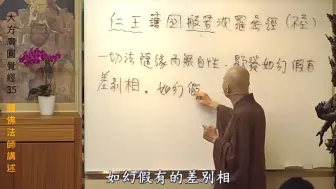 大方廣圓覺經 35
體佛法師講述
仁王護國般若波羅蜜經（陸）
一切法隨緣而無自性，顯發如幻假有
差別相。如幻假
如幻假有的差別相